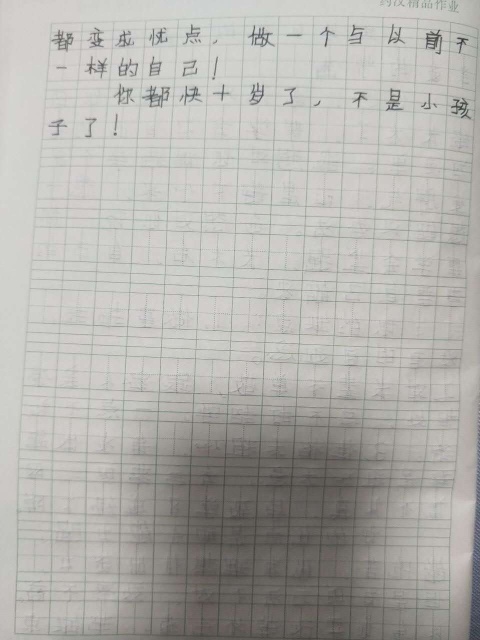 药汉精品作业
都变成优点，做一个与以前不
一样的自己！
你都快十岁了，不是小孩
子了！